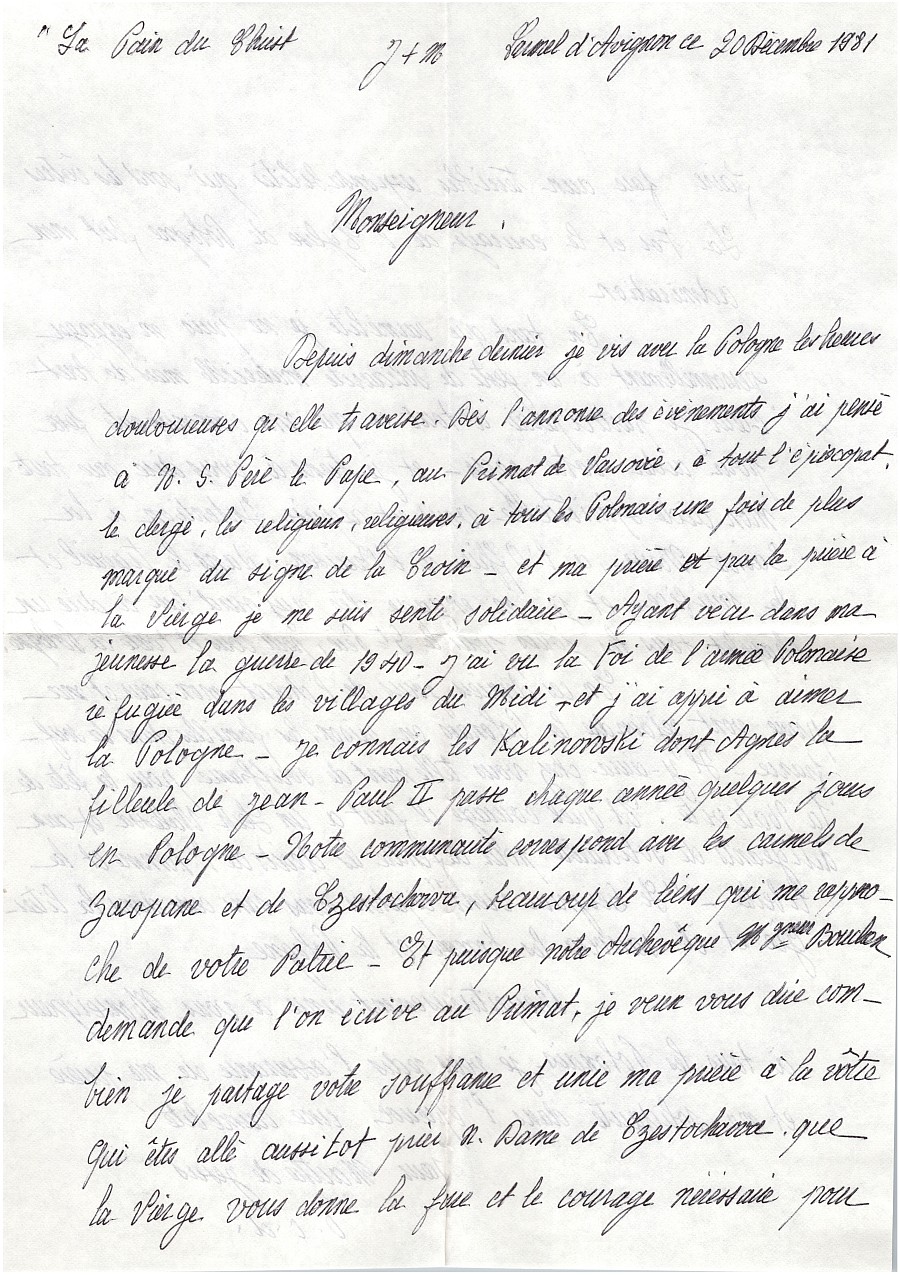 " La Paix du Christ J + M Carmel d'Avignon ce 20 Décembre 1981
Monseigneur,
Depuis dimanche dernier je vis avec la Pologne les heures
douloureuses qu'elle traverse. Dès l'annonce des évènements j'ai pensé
à N. S. Père le Pape, au Primat de Varsovie, à tout l'épiscopat,
le clergé, les religieux, religieuses, à tous les Polonais une fois de plus
marqué du signe de la Croix - et ma prière et par la prière à
la Vierge je me suis senti solidaire - Ayant vécu dans ma
jeunesse la guerre de 1940 - J'ai vu la Foi de l'armée Polonaise
réfugiée dans les villages du Midi - et j'ai appri à aimer
la Pologne - Je connais les Kalinowski dont Agnès la
filleule de Jean-Paul II passe chaque année quelques jours
en Pologne - Notre communauté correspond avec les carmels de
Zacopane et de Czestochova, beaucoup de liens qui me rappro-
che de votre Patrie - Et puisque notre Archevêque Mgneur Bouchex
demande que l'on écrive au Primat, je veux vous dire com-
bien je partage votre souffrance et unie ma prière à la vôtre
qui êtes allé aussitot prier N. Dame de Czestochova. que
la Vierge vous donne la force et le courage nécessaire pour